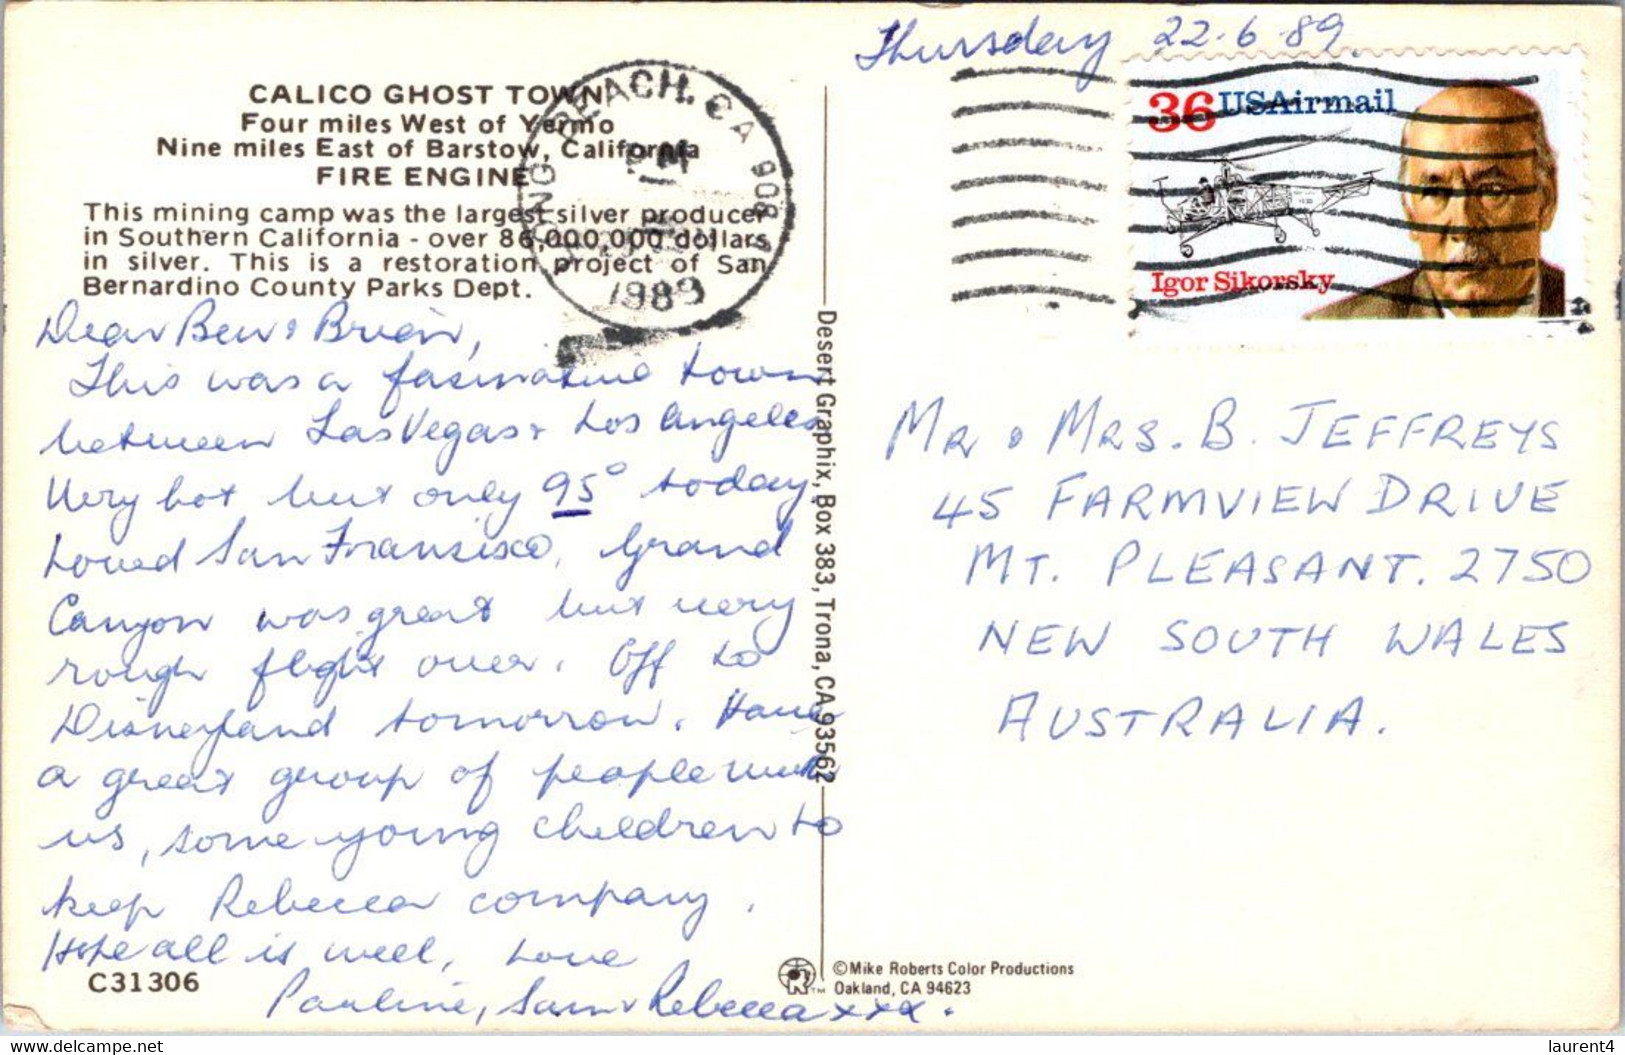 Thursday 22.6.89.
CALICO GHOST TOWN
Four miles West of Yermo
Nine miles East of Barstow, California
FIRE ENGINE
This mining camp was the largest silver producer
in Southern California - over 86,000,000 dollars
in silver. This is a restoration project of San
Bernardino County Parks Dept.
LONG BEACH, CA 908
PM
1989
36 USAirmail
Igor Sikorsky
Dear Bev & Brian,
This was a fascinating town
between Las Vegas & Los Angeles
Very hot but only 95° today
Loved San Fransisco, Grand
Canyon was great but very
rough flight over. Off to
Disneyland tomorrow. Have
a great group of people with
us, some young children to
keep Rebecca company.
Hope all is well, Love
Pauline, Sam & Rebecca xxx.
C31306
Desert Graphix, Box 383, Trona, CA 93562
MR & MRS. B. JEFFREYS
45 FARMVIEW DRIVE
MT. PLEASANT. 2750
NEW SOUTH WALES
AUSTRALIA.
©Mike Roberts Color Productions
Oakland, CA 94623
TM
www.delcampe.net
laurent4